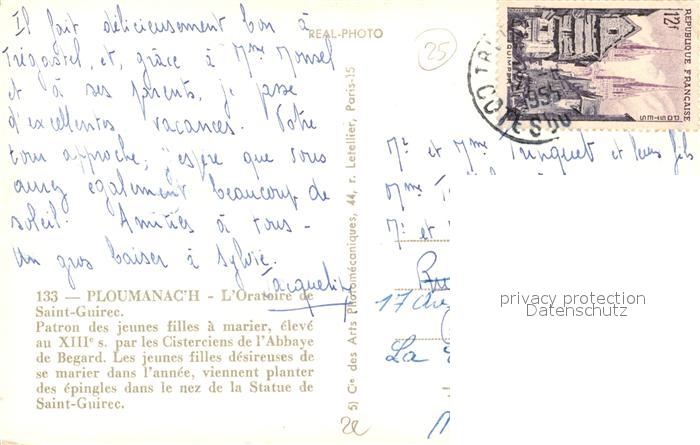 Il fait délicieusement bon à
Trégastel, et, grâce à Mme Monsel
et à ses parents, je passe
d'excellentes vacances. Votre
tour approche, j'espère que vous
aurez également beaucoup de
soleil. Amitiés à tous -
Un gros baiser à Sylvie.
Jacqueline
133 — PLOUMANAC'H - L'Oratoire de
Saint-Guirec.
Patron des jeunes filles à marier, élevé
au XIIIe s. par les Cisterciens de l'Abbaye
de Begard. Les jeunes filles désireuses de
se marier dans l'année, viennent planter
des épingles dans le nez de la Statue de
Saint-Guirec.
REAL-PHOTO
5) Cie des Arts Photomécaniques, 44, r. Letellier, Paris-15
25
12f
REPUBLIQUE FRANÇAISE
POSTES
QUIMPER
COTES DU
Mr et Mme Trinquet et leurs fils
Mme
Mr et
17 Ave
La
privacy protection
Datenschutz